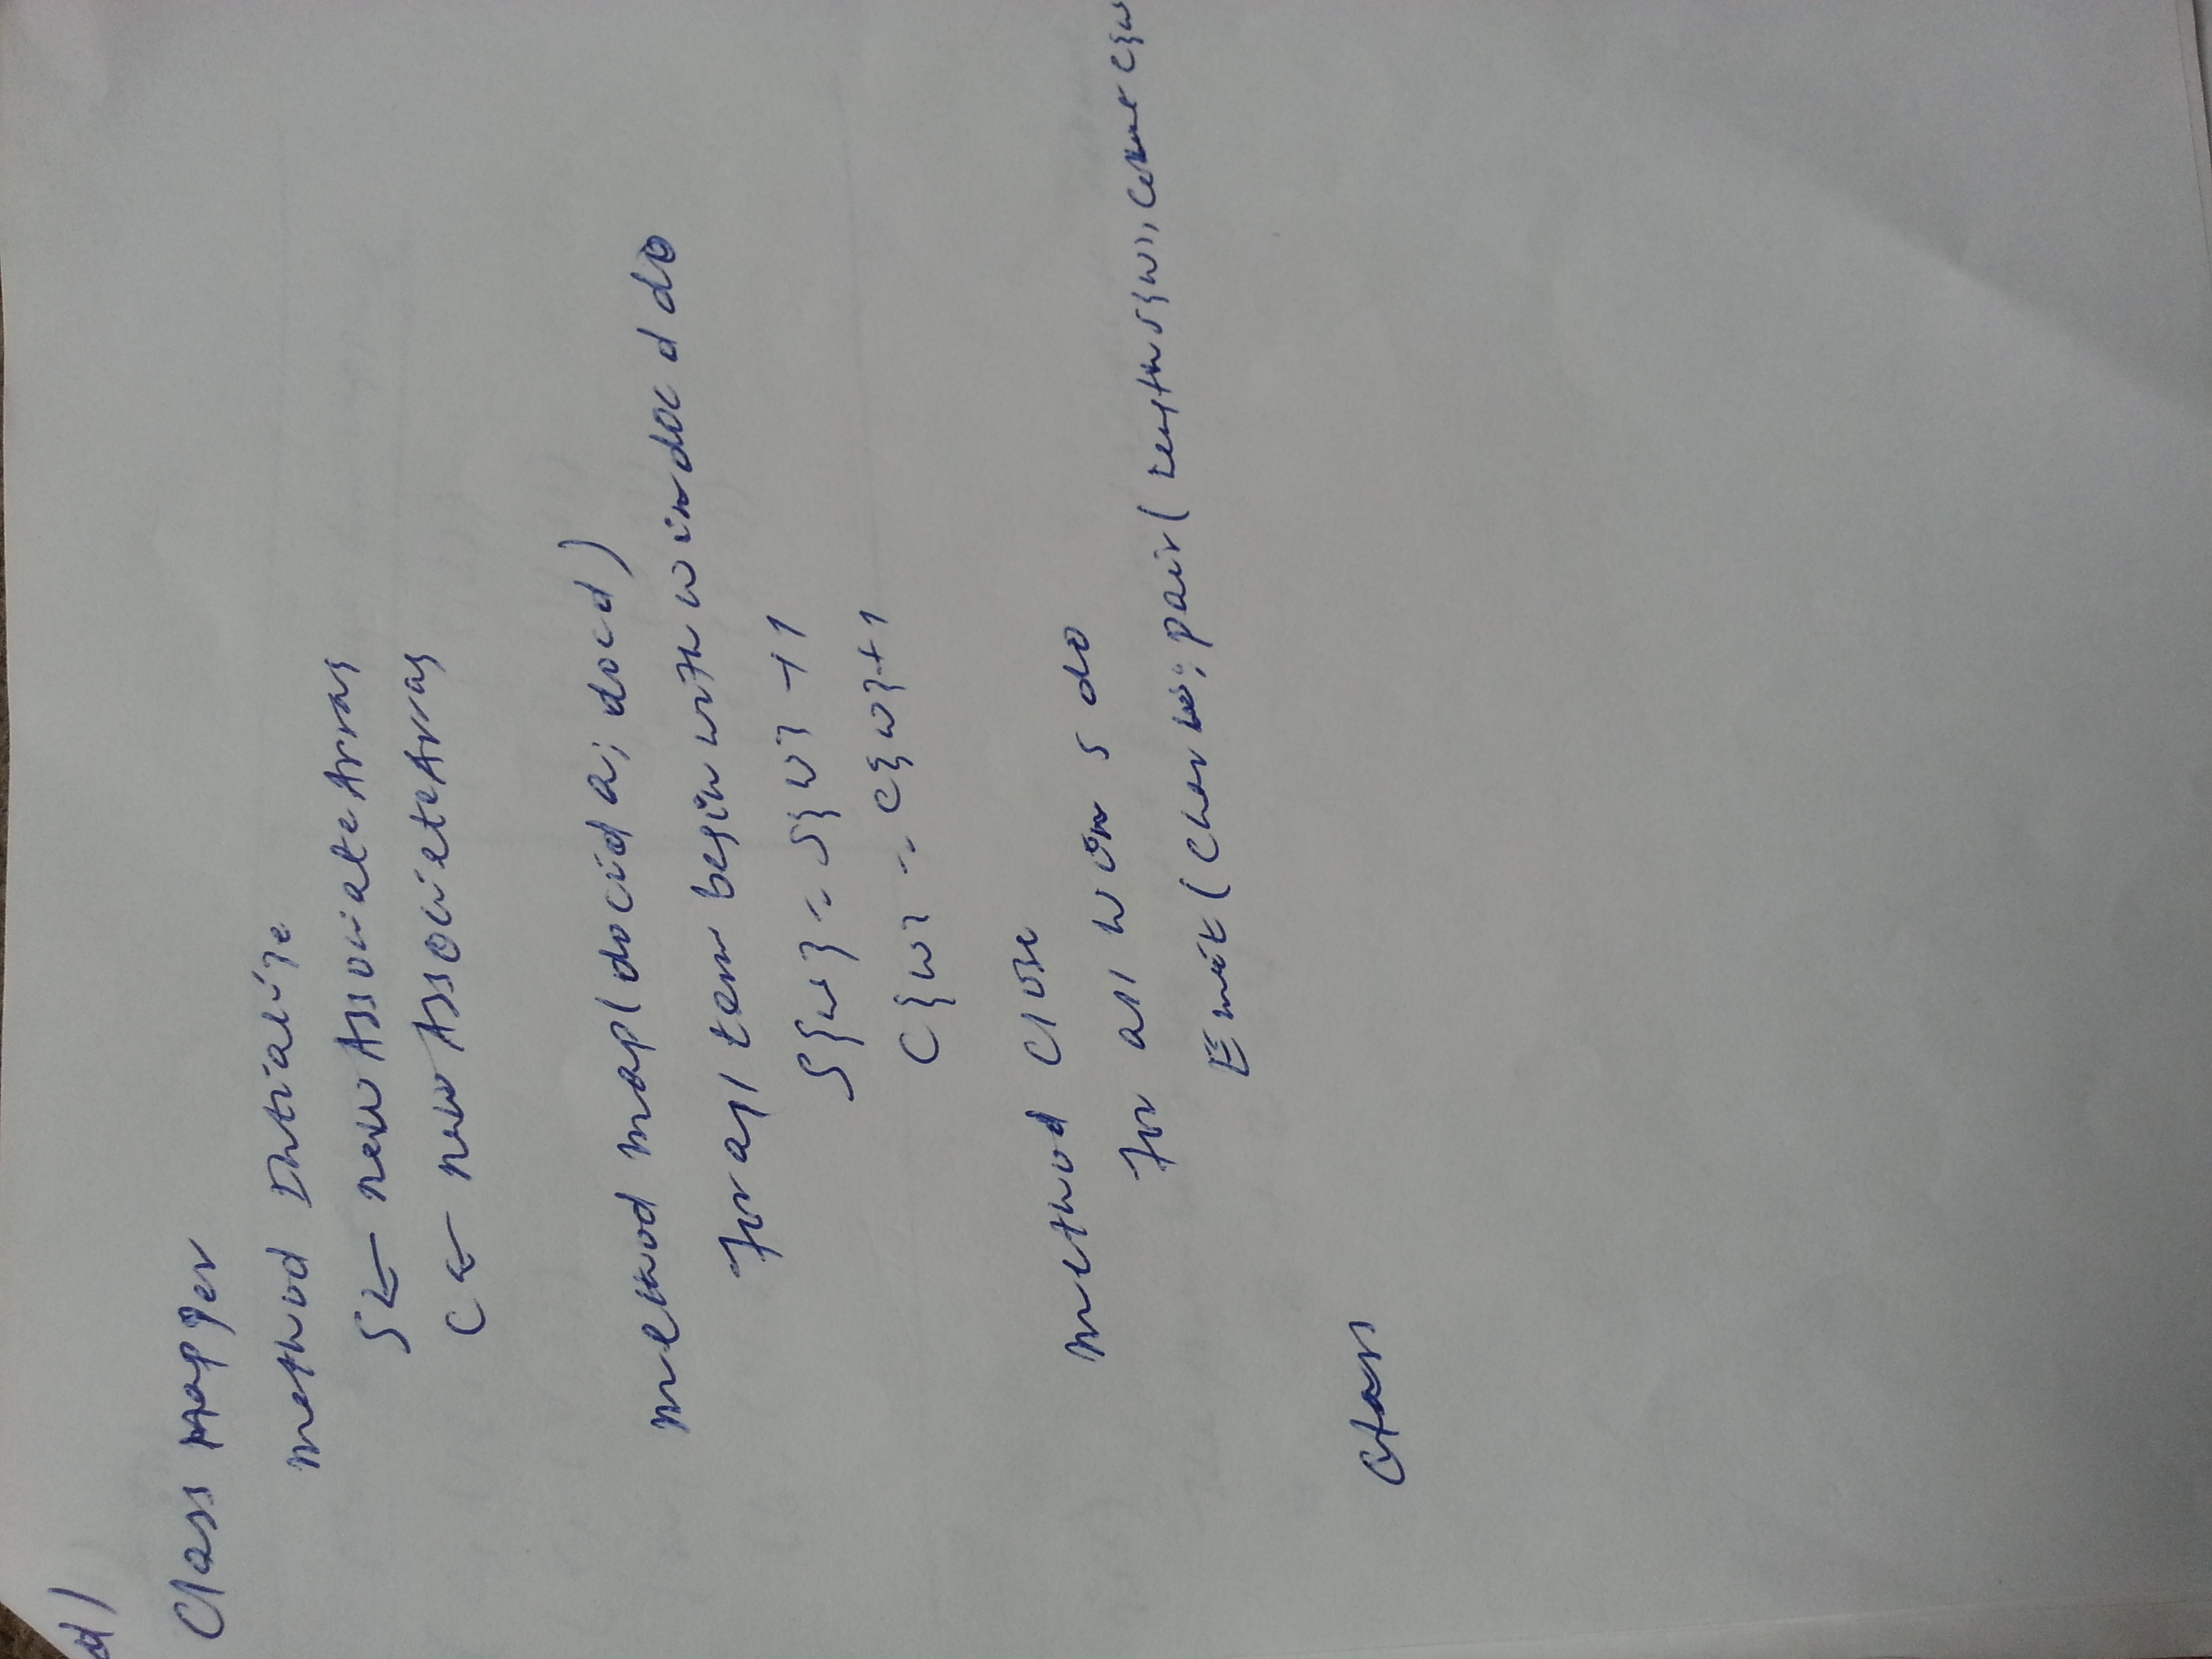 d)
Class Mapper
method Intialize
S ← new AssociateArray
C ← new AssociateArray
method map(docid a; doc d)
For all term begin with w in doc d do
S{w} = S{w} + 1
C{w} = C{w} + 1
method Close
For all w in S do
Emit(Char w; pair(length S{w}, count C{w
Class